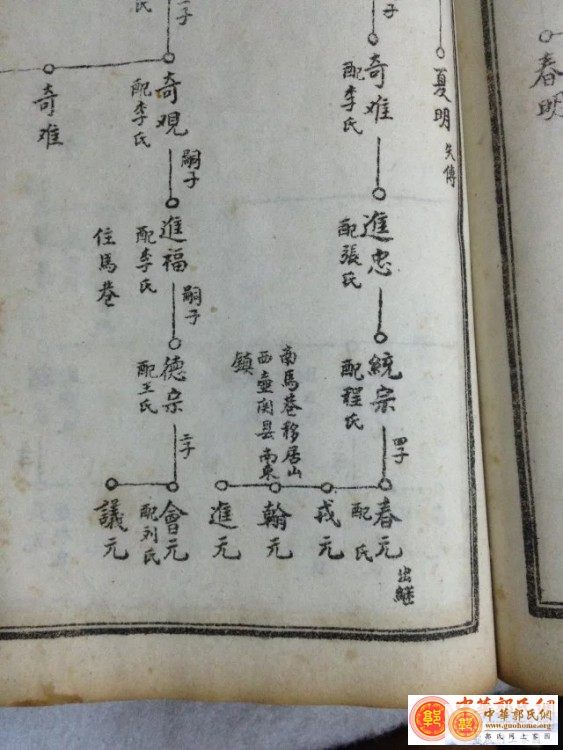 春明
夏明
失傳
奇难
配李氏
進忠
配張氏
統宗
配程氏
南馬巷移居山
西壺関县南東
鎮
四子
春元
配 氏
出繼
戎元
翰元
進元
奇观
配李氏
嗣子
進福
配李氏
住馬巷
嗣子
德宗
配王氏
二子
會元
配刘氏
議元
奇难
中華郭氏網
www.guohome.org
郭氏网上家园